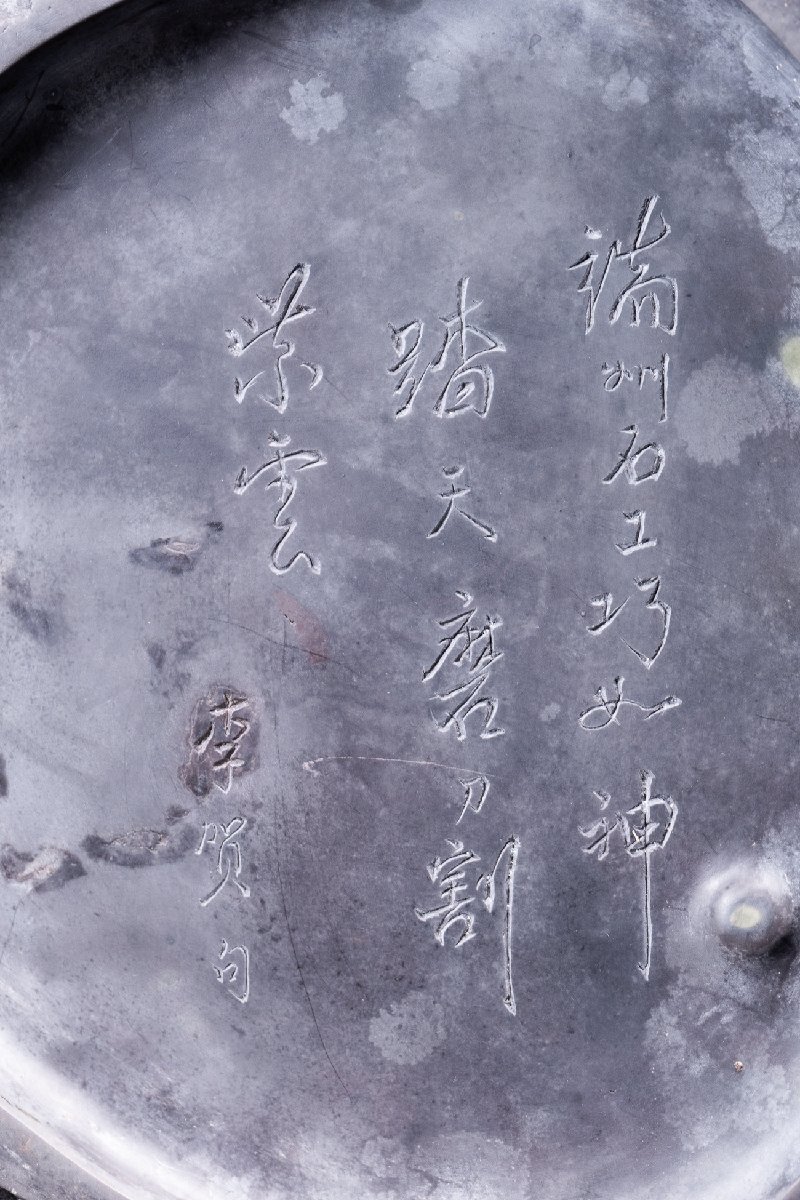 端州石工巧如神
踏天磨刀割
紫雲
李贺句